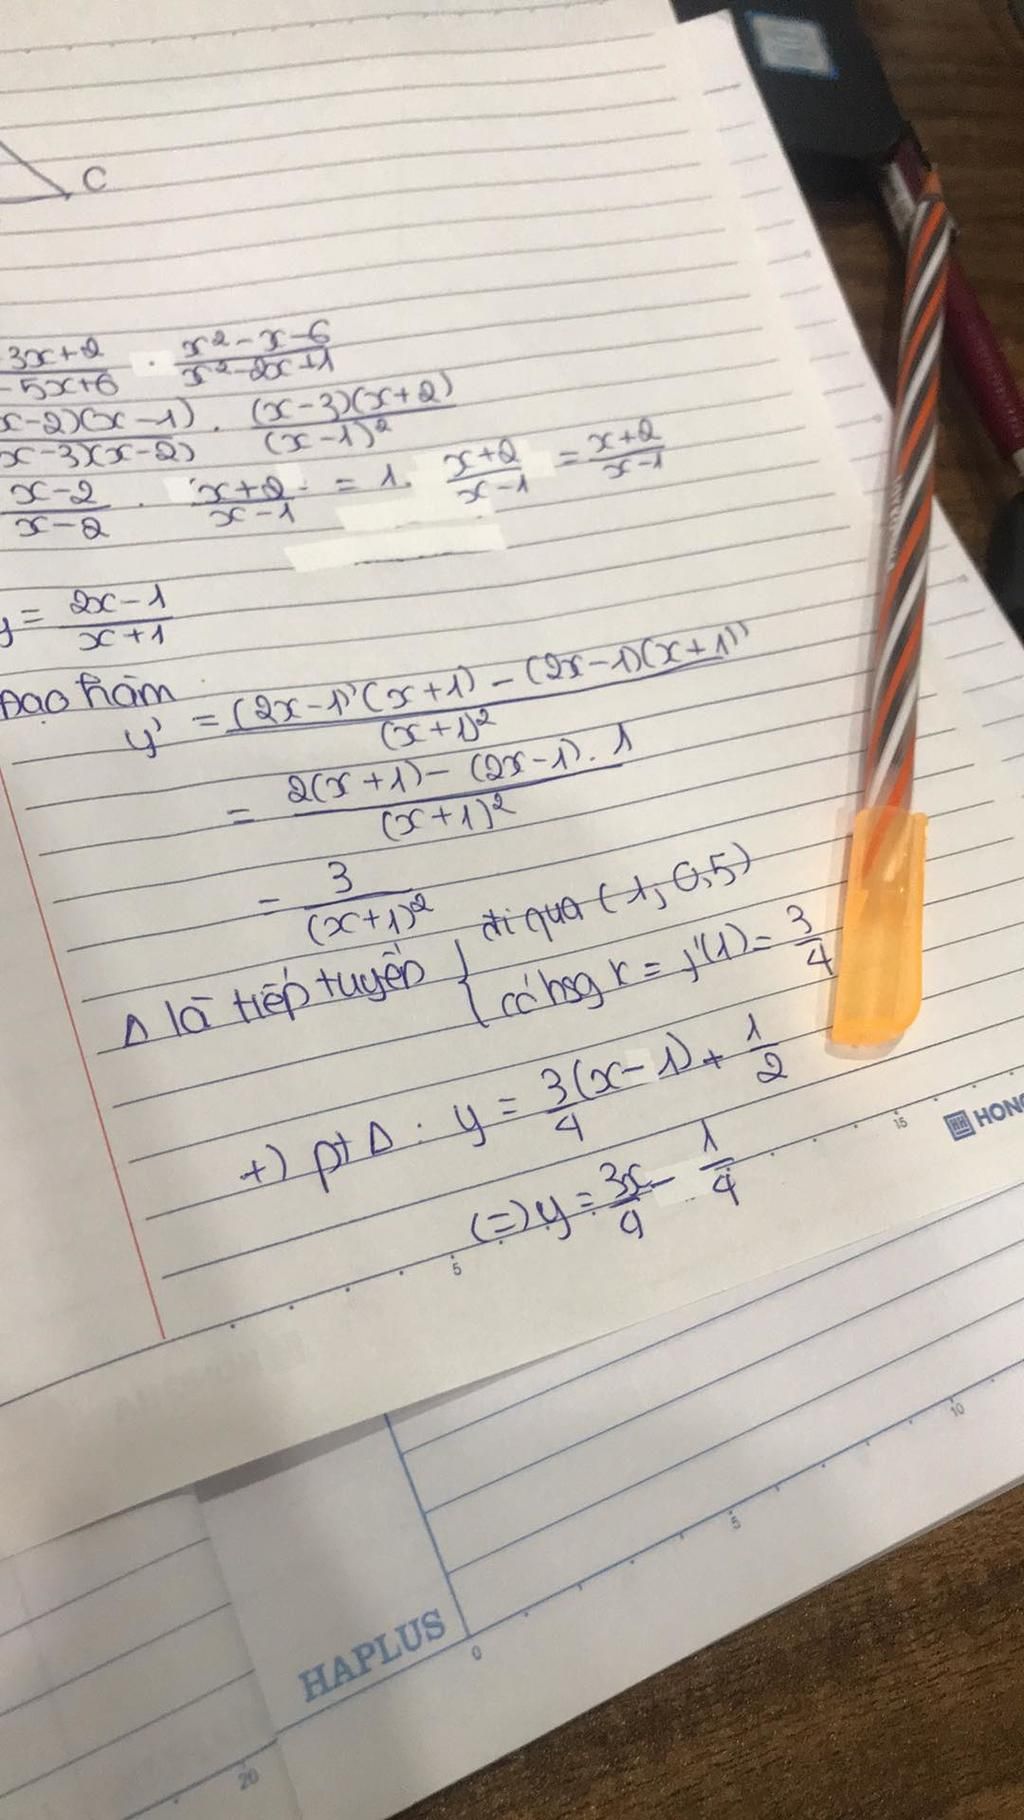 C
3x+2 / -5x+6 · x²-x-6 / x²-2x+1
x-2)(x-1) / x-3)(x-2) · (x-3)(x+2) / (x-1)²
x-2 / x-2 · x+2 / x-1 = 1. x+2 / x-1 = x+2 / x-1
y = 2x-1 / x+1
Đạo hàm
y' = (2x-1)'(x+1) - (2x-1)(x+1)' / (x+1)²
= 2(x+1) - (2x-1).1 / (x+1)²
= 3 / (x+1)²
Δ là tiếp tuyến { đi qua (1, 0,5)
có hsg k = y'(1) = 3/4
+) pt Δ : y = 3(x-1)/4 + 1/2
(=) y = 3x/4 - 1/4
5
15
HONG
10
5
0
HAPLUS
20